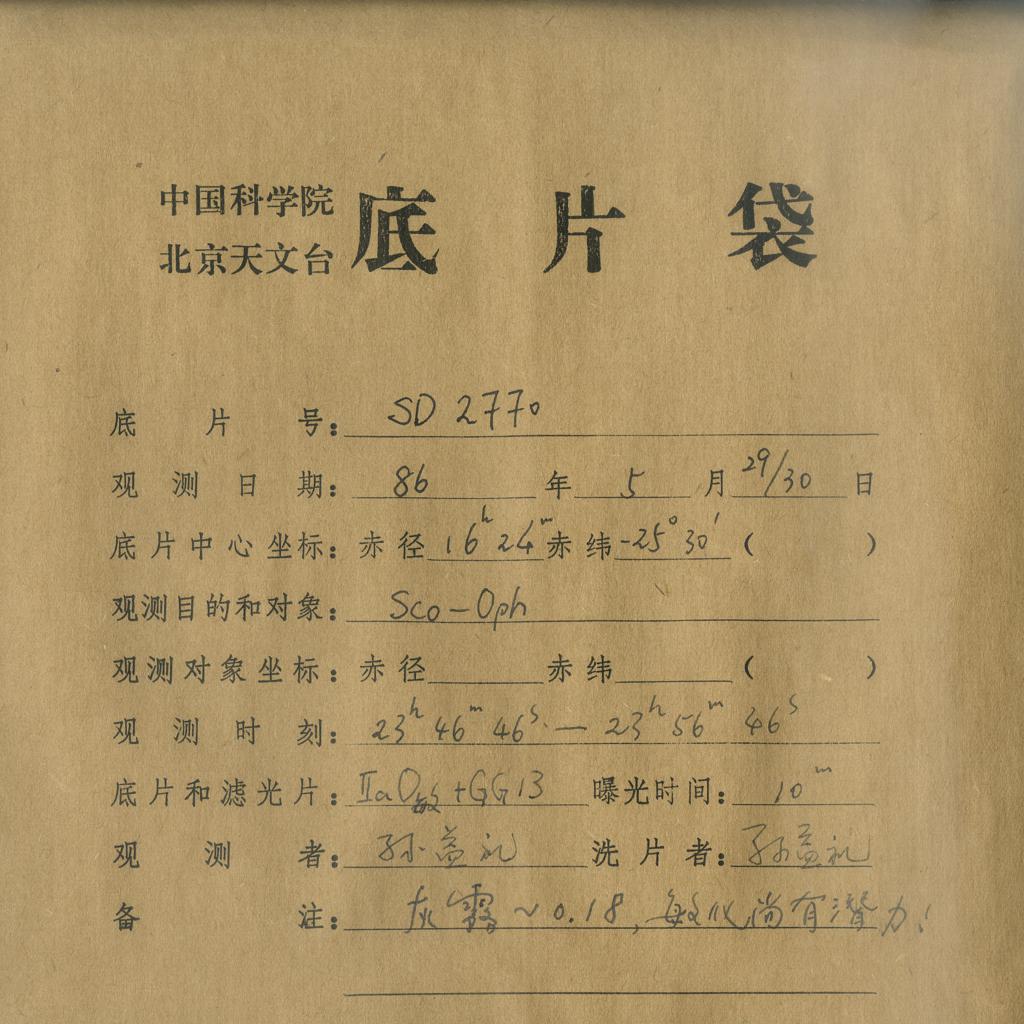 中国科学院
北京天文台
底片袋
底片号：SD 2770
观测日期：86年5月29/30日
底片中心坐标：赤径16ʰ24ᵐ赤纬-25°30′（ ）
观测目的和对象：Sco-Oph
观测对象坐标：赤径 赤纬 （ ）
观测时刻：23ʰ46ᵐ46ˢ.—23ʰ56ᵐ46ˢ
底片和滤光片：IIaO敏+GG13 曝光时间：10ᵐ
观测者：孙益礼 洗片者：孙益礼
备注：灰雾~0.18,敏化尚有潜力!